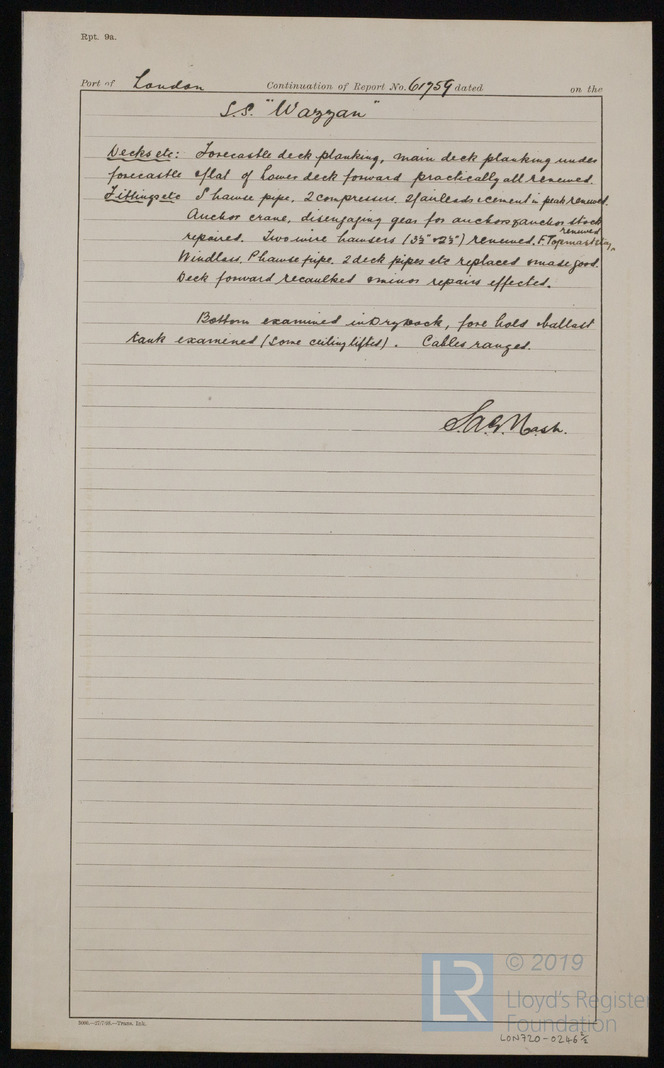 Rpt. 9a.
Port of London Continuation of Report No. 61759 dated on the
S.S. "Wazzan"
Decks etc: Forecastle deck planking, main deck planking under
forecastle & flat of lower deck forward practically all renewed.
Fittings etc S hawse pipe, 2 compressors, 2 fairleads & cement in peak renewed.
Anchor crane, disengaging gear for anchors & anchor stock
repaired. Two wire hawsers (3½" & 2½") renewed. F. Topmast stay renewed
Windlass, P hawse pipe, 2 deck pipes etc replaced & made good.
Deck forward recaulked & minor repairs effected.
Bottom examined in Dry Dock, fore hold ballast
tank examined (Some ceiling lifted). Cables ranged.
S.A.G. Nash.
5000.—27/7/98.—Trans. Ink.
LR
© 2019
Lloyd's Register
Foundation
LON720-0246